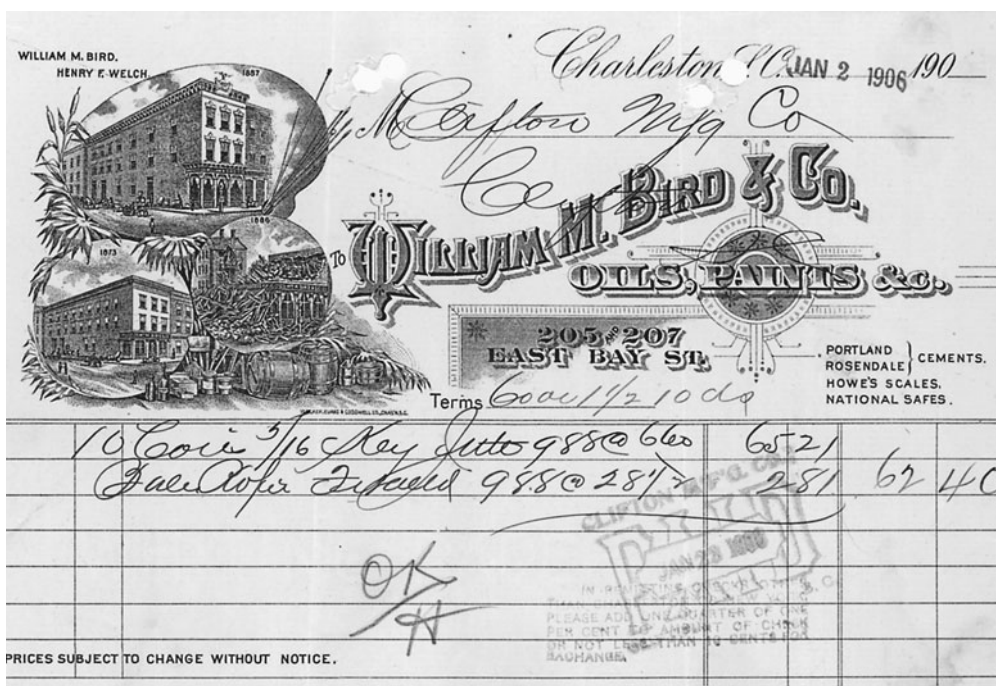 WILLIAM M. BIRD.
HENRY F. WELCH.
1887
1886
1873
Charleston S.C. JAN 2 1906 190
M Clifton Mfg Co
To WILLIAM M. BIRD & CO.
OILS, PAINTS &c.
205 AND 207
EAST BAY ST.
PORTLAND
ROSENDALE
CEMENTS.
HOWE'S SCALES.
NATIONAL SAFES.
Terms 60 1 1/2 10 ds
WALKER, EVANS & COGSWELL CO., CHAS'N S.C.
10 Coils 5/16 Key 988 @ 660 6521
988 @ 28 1/2 281 62 40
CLIFTON M'F'G. CO.
PAID
JAN 23 1906
OK
H
IN REMITTING
PLEASE ADD ONE QUARTER OF ONE
PER CENT OF AMOUNT OF CHECK
OR NOT LESS THAN 10 CENTS FOR
EXCHANGE.
PRICES SUBJECT TO CHANGE WITHOUT NOTICE.